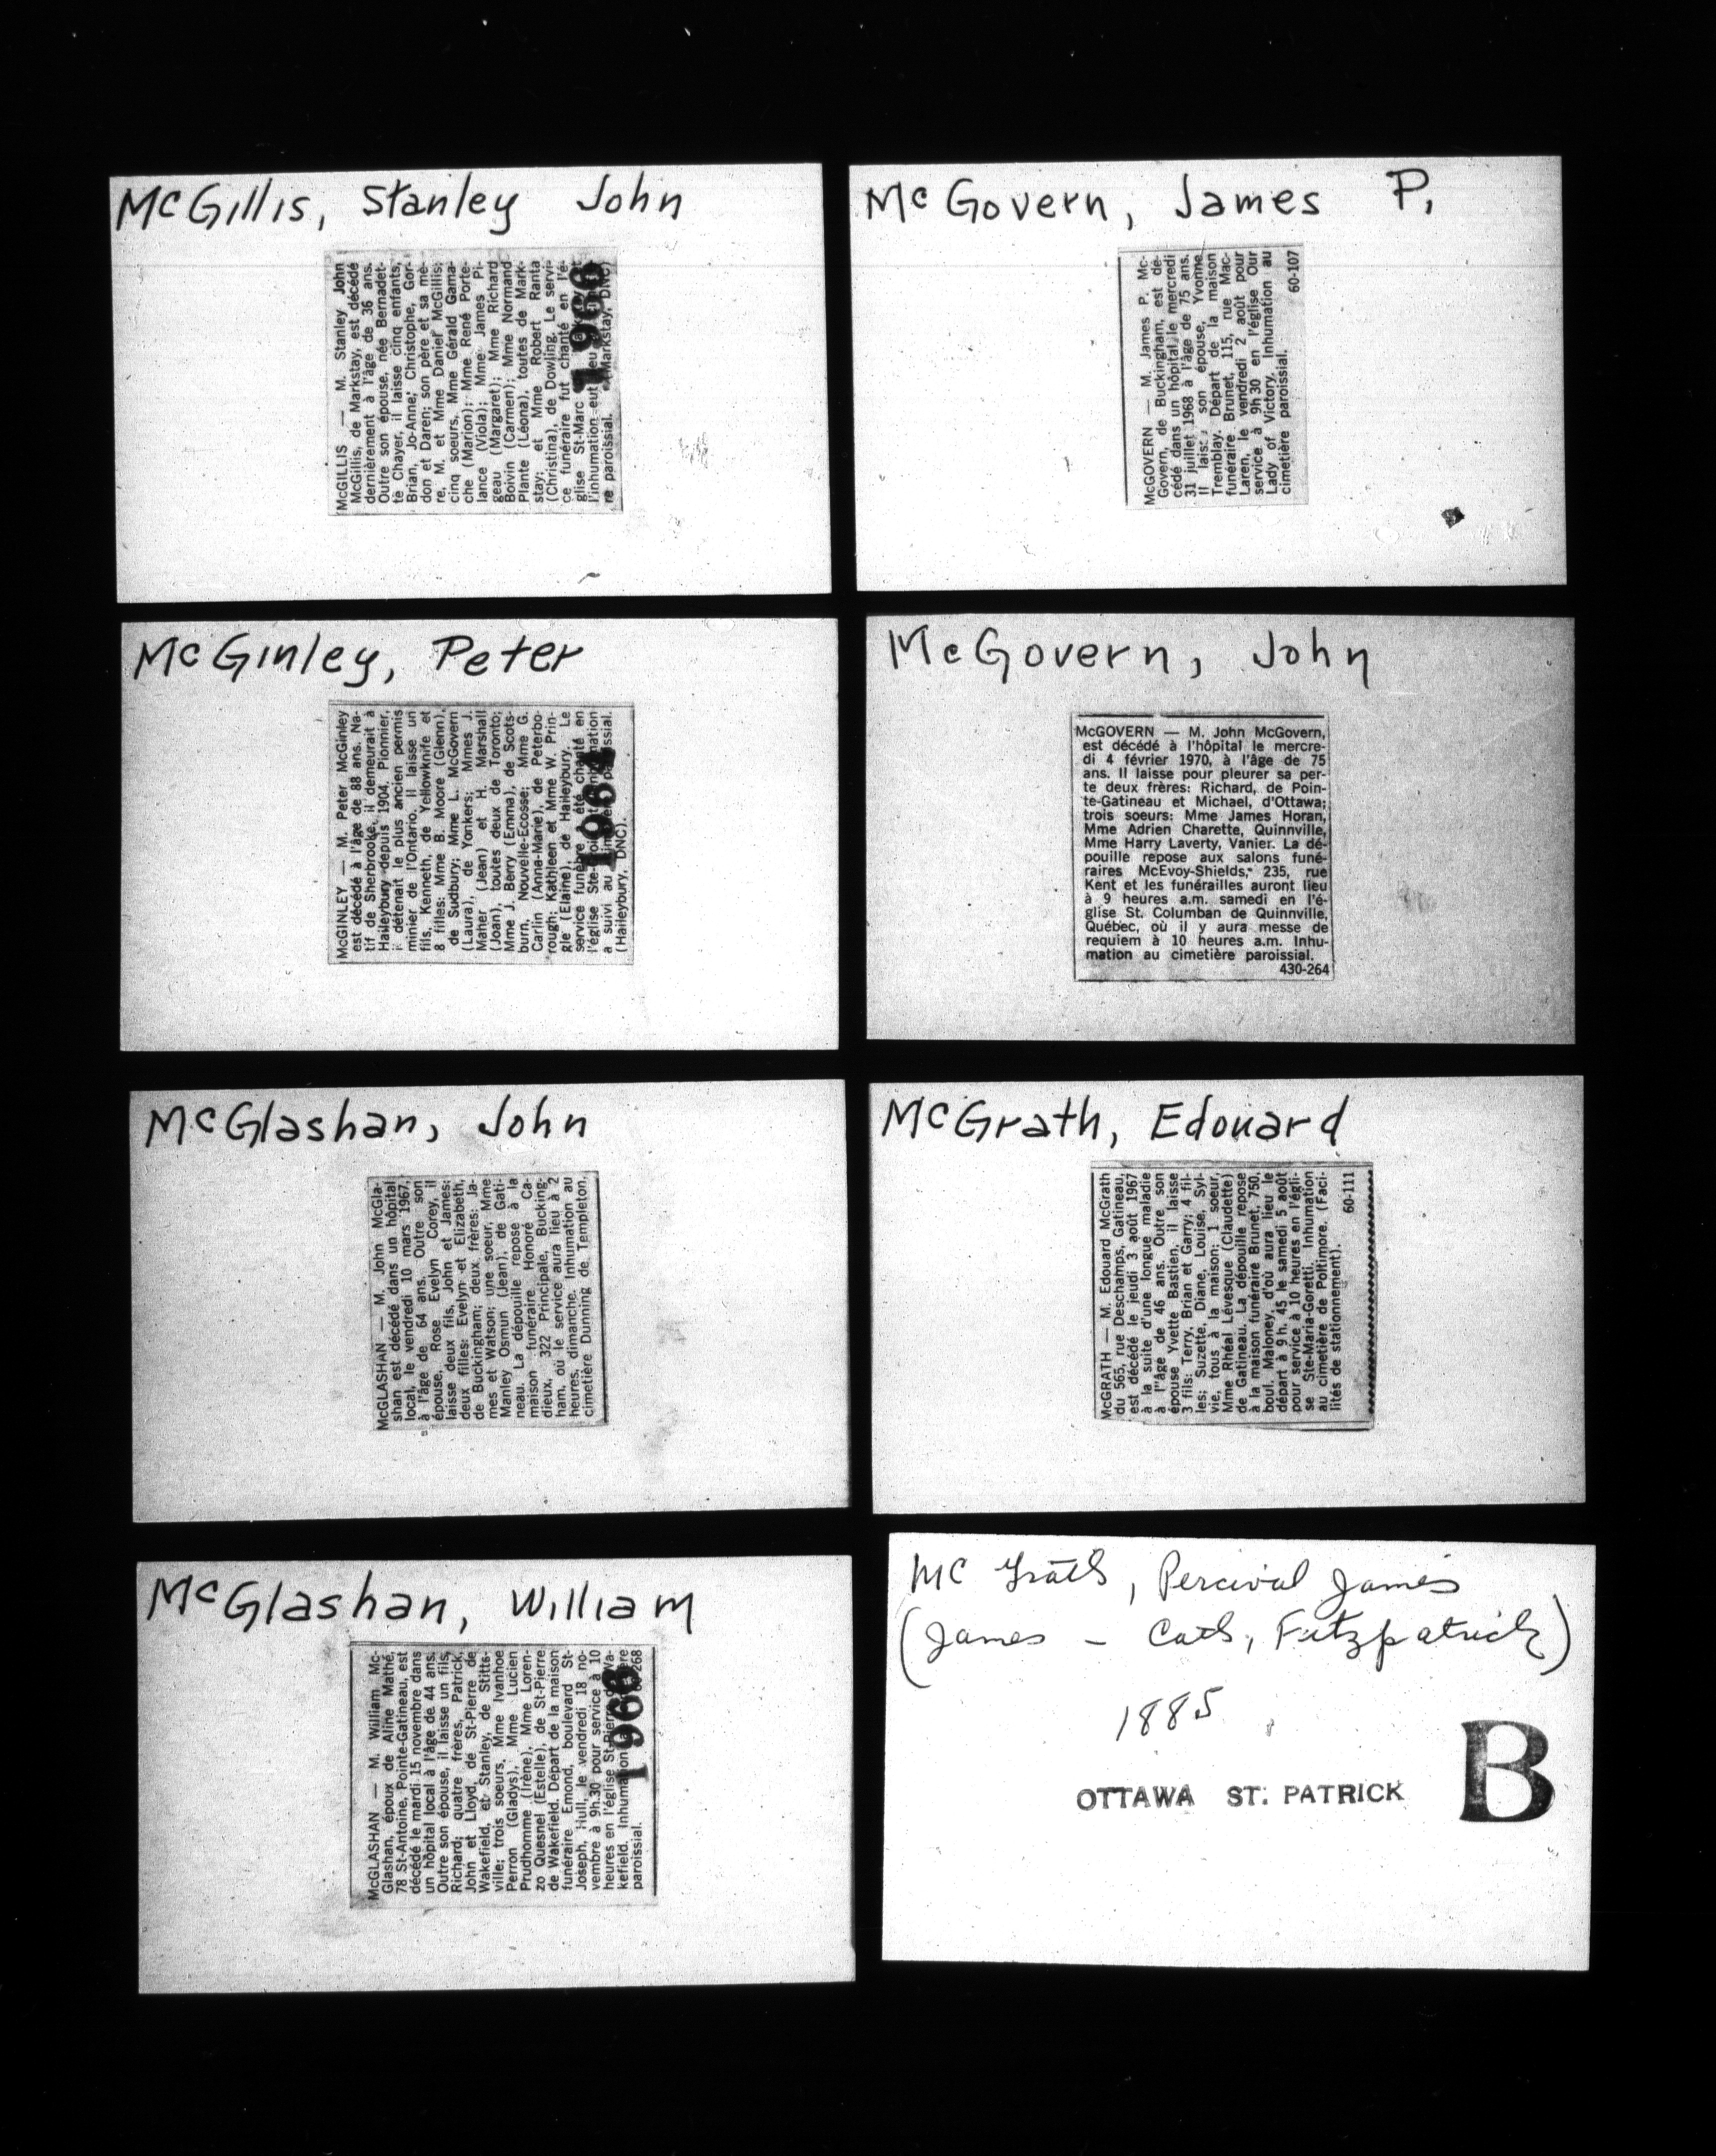 McGillis, Stanley John
McGILLIS — M. Stanley John
McGillis, de Markstay, est décédé
dernièrement à l'âge de 36 ans.
Outre son épouse, née Bernadet-
te Chayer, il laisse cinq enfants,
Brian, Jo-Anne, Christophe, Gor-
don et Daren; son père et sa mè-
re, M. et Mme Daniel McGillis;
cinq soeurs, Mme Gérald Gama-
che (Marion); Mme René Porte-
lance (Viola); Mme James Pi-
geau (Margaret); Mme Richard
Boivin (Carmen); Mme Normand
Plante (Léona), toutes de Mark-
stay; et Mme Robert Ranta
(Christina), de Dowling. Le servi-
ce funéraire fut chanté en l'é-
glise St-Marc
l'inhumation eut lieu
re paroissial. (Markstay, DNC)
1966
McGinley, Peter
McGINLEY — M. Peter McGinley
est décédé à l'âge de 88 ans. Na-
tif de Sherbrooke, il demeurait à
Haileybury depuis 1904. Pionnier,
il détenait le plus ancien permis
minier de l'Ontario. Il laisse un
fils, Kenneth, de Yellowknife et
8 filles: Mme B. Moore (Glenn),
de Sudbury; Mme L. McGovern
(Laura), de Yonkers; Mmes J.
Maher (Jean) et H. Marshall
(Joan), toutes deux de Toronto;
Mme J. Berry (Emma), de Scots-
burn, Nouvelle-Ecosse; Mme G.
Carlin (Anna-Marie), de Peterbo-
rough; Kathleen et Mme W. Prin-
gle (Elaine), de Haileybury. Le
service funèbre a été chanté en
l'église Ste-
a suivi au
(Haileybury, DNC).
1964
McGlashan, John
McGLASHAN — M. John McGla-
shan est décédé dans un hôpital
local, le vendredi 10 mars 1967,
à l'âge de 64 ans. Outre son
épouse, Rose Evelyn Corey, il
laisse deux fils, John et James;
deux filles: Evelyn et Elizabeth,
de Buckingham; deux frères: Ja-
mes et Watson; une soeur, Mme
Manley Osmun (Jean), de Gati-
neau. La dépouille repose à la
maison funéraire Honoré Ca-
dieux, 322 Principale, Bucking-
ham, où le service aura lieu à 2
heures, dimanche. Inhumation au
cimetière Dunning de Templeton.
McGlashan, William
McGLASHAN — M. William Mc-
Glashan, époux de Aline Mathé,
78 St-Antoine, Pointe-Gatineau, est
décédé le mardi 15 novembre dans
un hôpital local à l'âge de 44 ans.
Outre son épouse, il laisse un fils,
Richard; quatre frères, Patrick,
John et Lloyd, de St-Pierre de
Wakefield, et Stanley, de Stitts-
ville; trois soeurs, Mme Ivanhoe
Perron (Gladys), Mme Lucien
Prudhomme (Irène), Mme Loren-
zo Quesnel (Estelle), de St-Pierre
de Wakefield. Départ de la maison
funéraire Emond, boulevard St-
Joseph, Hull, le vendredi 18 no-
vembre à 9h.30 pour service à 10
heures en l'église St-Pierre de Wa-
kefield. Inhumation
paroissial. 268
McGovern, James P.
McGOVERN — M. James P. Mc-
Govern, de Buckingham, est dé-
cédé dans un hôpital, le mercredi
31 juillet 1968 à l'âge de 75 ans.
Il son épouse, Yvonne
Tremblay. Départ de la maison
funéraire Brunet, 115, rue Mac-
Laren, le vendredi 2 août pour
service à 9h 30 en l'église Our
Lady of Victory. Inhumation au
cimetière paroissial.
60-107
McGovern, John
McGOVERN — M. John McGovern,
est décédé à l'hôpital le mercre-
di 4 février 1970, à l'âge de 75
ans. Il laisse pour pleurer sa per-
te deux frères: Richard, de Poin-
te-Gatineau et Michael, d'Ottawa;
trois soeurs: Mme James Horan,
Mme Adrien Charette, Quinnville,
Mme Harry Laverty, Vanier. La dé-
pouille repose aux salons funé-
raires McEvoy-Shields, 235, rue
Kent et les funérailles auront lieu
à 9 heures a.m. samedi en l'é-
glise St. Columban de Quinnville,
Québec, où il y aura messe de
requiem à 10 heures a.m. Inhu-
mation au cimetière paroissial.
430-264
McGrath, Edouard
McGRATH — M. Edouard McGrath
du 565, rue Deschamps, Gatineau,
est décédé le jeudi 3 août 1967
à la suite d'une longue maladie
à l'âge de 46 ans. Outre son
épouse Yvette Bastien, il laisse
3 fils: Terry, Brian et Garry; 4 fil-
les: Suzette, Diane, Louise, Syl-
vie, tous à la maison; 1 soeur,
Mme Rhéal Lévesque (Claudette)
de Gatineau. La dépouille repose
à la maison funéraire Brunet, 750,
boul. Maloney, d'où aura lieu le
départ à 9 h. 45 le samedi 5 août
pour service à 10 heures en l'égli-
se Ste-Maria-Goretti. Inhumation
au cimetière de Poltimore. (Faci-
lités de stationnement).
60-111
McGrath, Percival James
(James - Cath, Fitzpatrick)
1885
OTTAWA ST. PATRICK
B